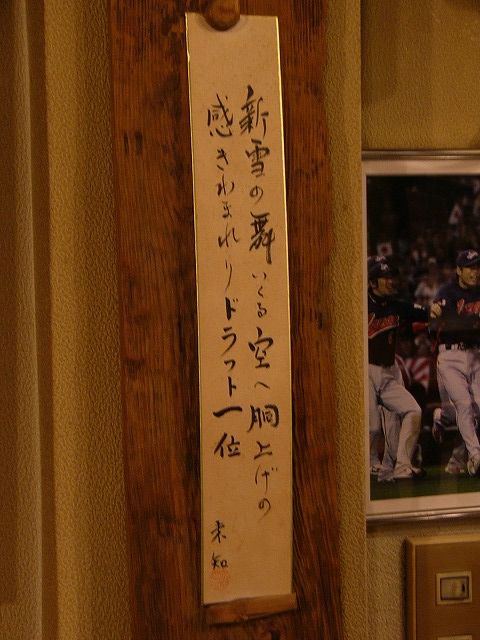 新雪の舞いくる空へ胴上げの
感きわまれりドラフト一位
未知